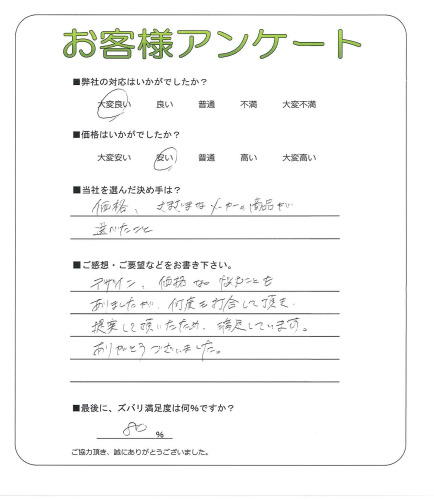 お客様アンケート
■弊社の対応はいかがでしたか？
大変良い 良い 普通 不満 大変不満
■価格はいかがでしたか？
大変安い 安い 普通 高い 大変高い
■当社を選んだ決め手は？
価格、さまざまなメーカーの商品が
選べたこと
■ご感想・ご要望などをお書き下さい。
デザイン、価格など なやむことも
ありましたが、何度も打合して頂き、
提案して頂いたため、満足しています。
ありがとうございました。
■最後に、ズバリ満足度は何％ですか？
80 ％
ご協力頂き、誠にありがとうございました。